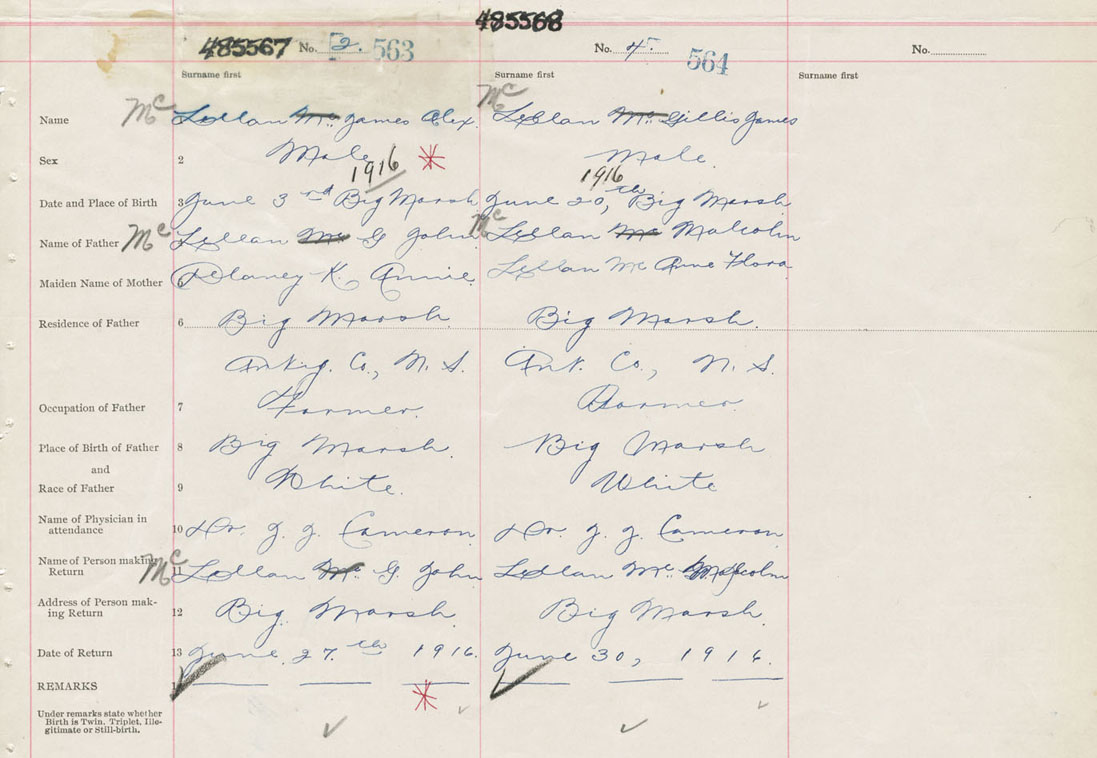 485568
485567 No. 2. 563 No. 4. 564 No.
Surname first Surname first Surname first
Name Mc Lellan Mc. James Alex. Mc Lellan Mc. Gillis James
Sex 2 Male Male.
1916 1916
Date and Place of Birth 3 June 3rd Big Marsh June 20,th Big Marsh
Name of Father Mc Lellan Mc G John Mc Lellan Mc Malcolm
Maiden Name of Mother Delaney K. Annie. Lellan Mc Anne Flora
Residence of Father 6 Big Marsh. Big Marsh.
Antig. Co., N. S. Ant. Co., N. S.
Occupation of Father 7 Farmer. Farmer.
Place of Birth of Father 8 Big Marsh. Big Marsh
and
Race of Father 9 White. White
Name of Physician in
attendance 10 Dr. J. J. Cameron Dr. J. J. Cameron
Name of Person making
Return 11 Mc Lellan Mc. G. John Lellan Mc. Malcolm
Address of Person mak-
ing Return 12 Big Marsh. Big Marsh.
Date of Return 13 June 27.th 1916. June 30, 1916.
REMARKS
Under remarks state whether
Birth is Twin, Triplet, Ille-
gitimate or Still-birth.